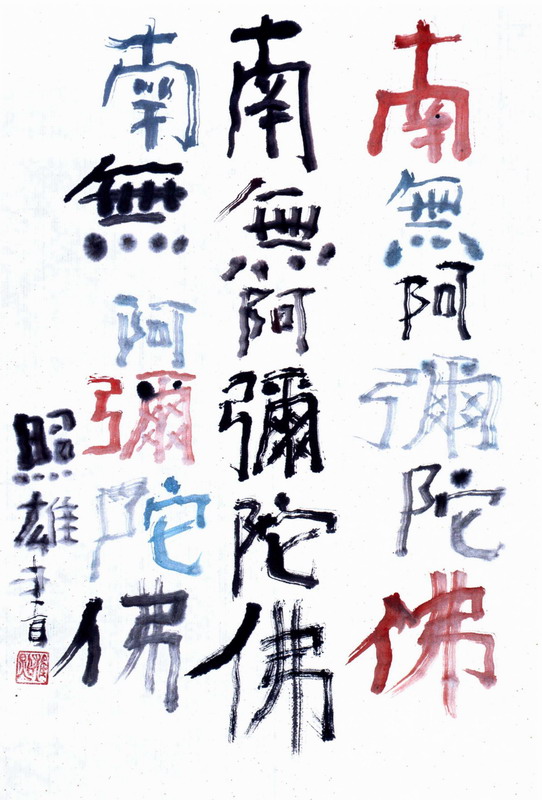 南無阿彌陀佛
南無阿彌陀佛
南無阿彌陀佛
照雄